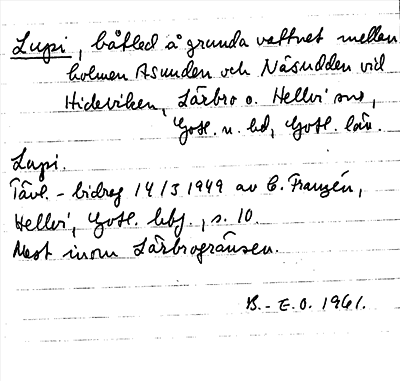 Lupi, båtled å grunda vattnet mellan
holmen Asunden och Näsudden vid
Hideviken, Lärbro o. Hellvi snr,
Gotl. n. hd, Gotl. län.
Lupi.
Tävl.-bidrag 14/3 1949 av C. Franzén,
Hellvi, Gotl. hbf., s. 10.
Mest inom Lärbrogränsen.
B.-E.O. 1961.